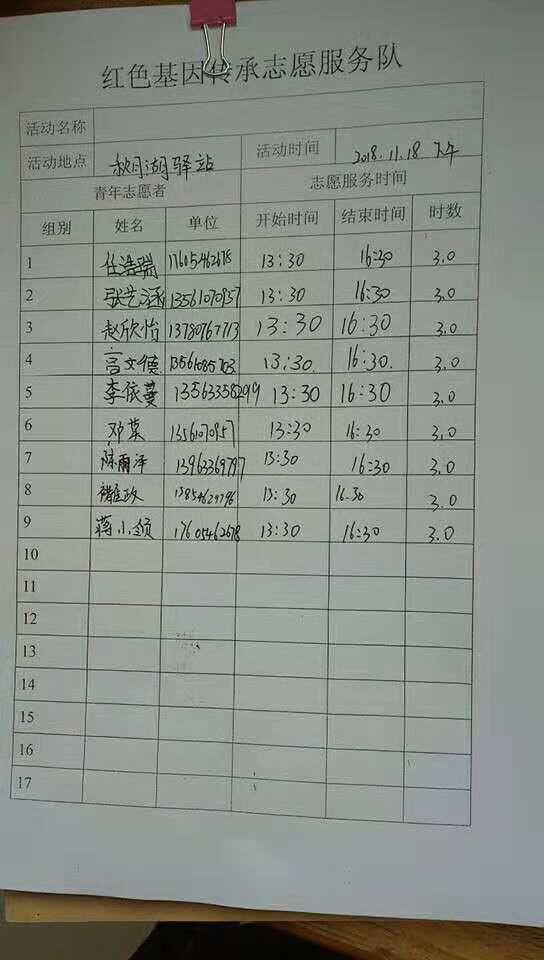 红色基因传承志愿服务队
活动名称
活动地点 秋月湖驿站 活动时间 2018.11.18 下午
青年志愿者 志愿服务时间
组别 姓名 单位 开始时间 结束时间 时数
1 任浩瑞 17605462678 13:30 16:30 3.0
2 张艺涵 13561070957 13:30 16:30 3.0
3 赵欣怡 13780767713 13:30 16:30 3.0
4 宫文德 13:30. 16:30. 3.0
5 李依蔓 13563358299 13:30 16:30 3.0
6 邓菜 13561070957 13:30 16:30 3.0
7 陈雨泽 13963369797 13:30 16:30 3.0
8 13:30 16.30 3.0
9 蒋小颂 17605462678 13:30 16:30 3.0
10
11
12
13
14
15
16
17